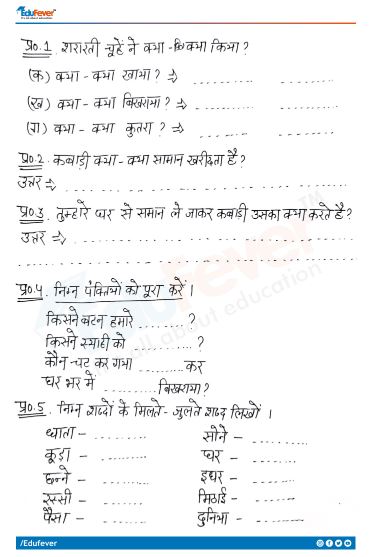 Edufever
It's all about education
प्र०.1 शरारती चूहे ने क्या-क्या किया?
(क) क्या-क्या खाया? ⇒ ............ ............
(ख) क्या-क्या बिखराया? ⇒ ............ ............
(ग) क्या-क्या कुतरा? ⇒ ............ ............
प्र०.2 कबाड़ी क्या-क्या सामान खरीदता है?
उत्तर ⇒ ............
प्र०.3 तुम्हारे घर से समान ले जाकर कबाड़ी उसका क्या करते है?
उत्तर ⇒ ............
प्र०.4 निम्न पंक्तियों को पूरा करें।
किसने बटन हमारे ............?
किसने स्याही को ............?
कौन चट कर गया ............ कर
घर भर में ............ बिखराया?
प्र०.5 निम्न शब्दों के मिलते-जुलते शब्द लिखों।
धाता - ............ सोने - ............
कूड़ा - ............ घर - ............
छन्ने - ............ इधर - ............
रस्सी - ............ मिठाई - ............
पैसा - ............ दुनिया - ............
/Edufever